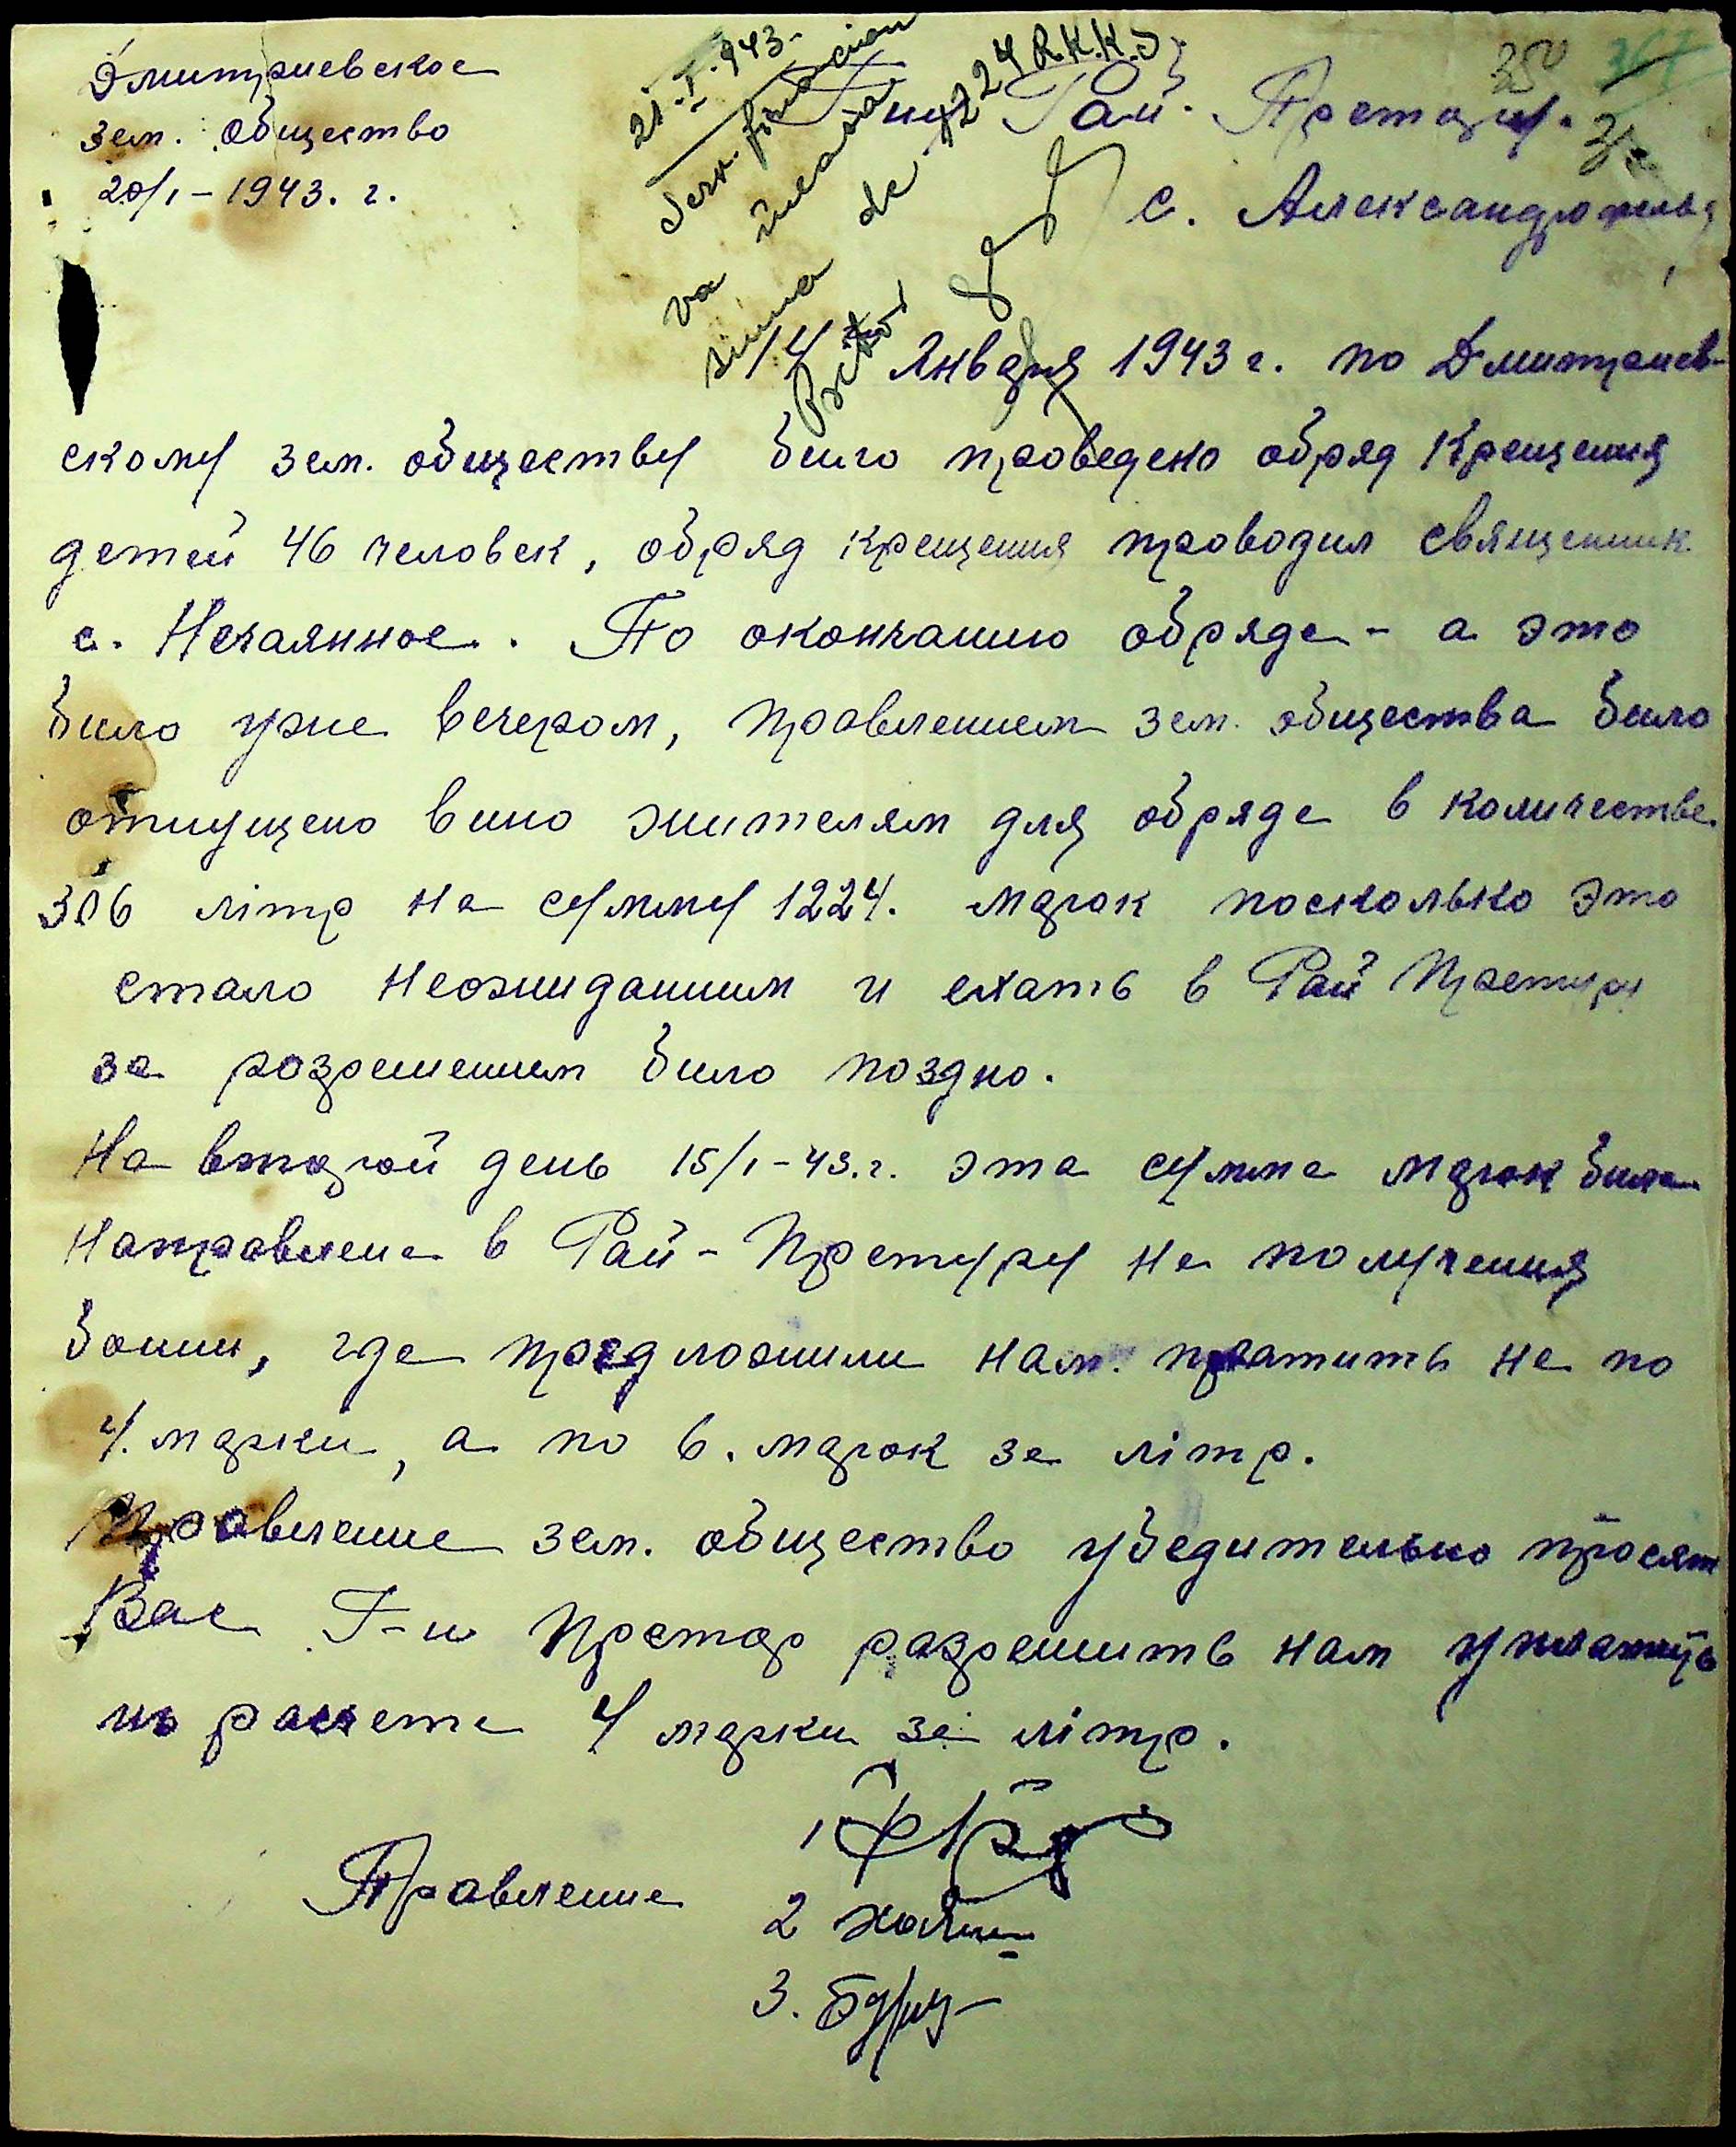 Дмитриевское
зем. общество
20/I – 1943. г.
21.I.943.
Serv. financiar
va încasa
suma de 1224 R.K.K.S
350
Г-ну Рай. Претору.
с. Александрфельд
14го Января 1943 г. по Дмитриев-
скому зем. обществу било проведено обряд Крещения
детей 46 человек, обряд крещения проводил священник
с. Нечаянное. По окончанию обряда - а это
било уже вечером, правлением зем. общества било
отпущено вино жителям для обряда в количестве
306 літр на сумму 1224. марок поскольво это
стало неожиданим и ехать в Рай Претуру
за розрешением било поздно.
На второй день 15/I-43.г. эта сумма марок била
направлена в Рай-Претуру на получения
бонии, где предложили нам платить не по
4. марки, а по 6. марок за літр.
Правление зем. общество убедительно просят
Вас Г-н Претор разрешить нам уплатить
из расчета 4 марки за літр.
Правление
1
2
3.